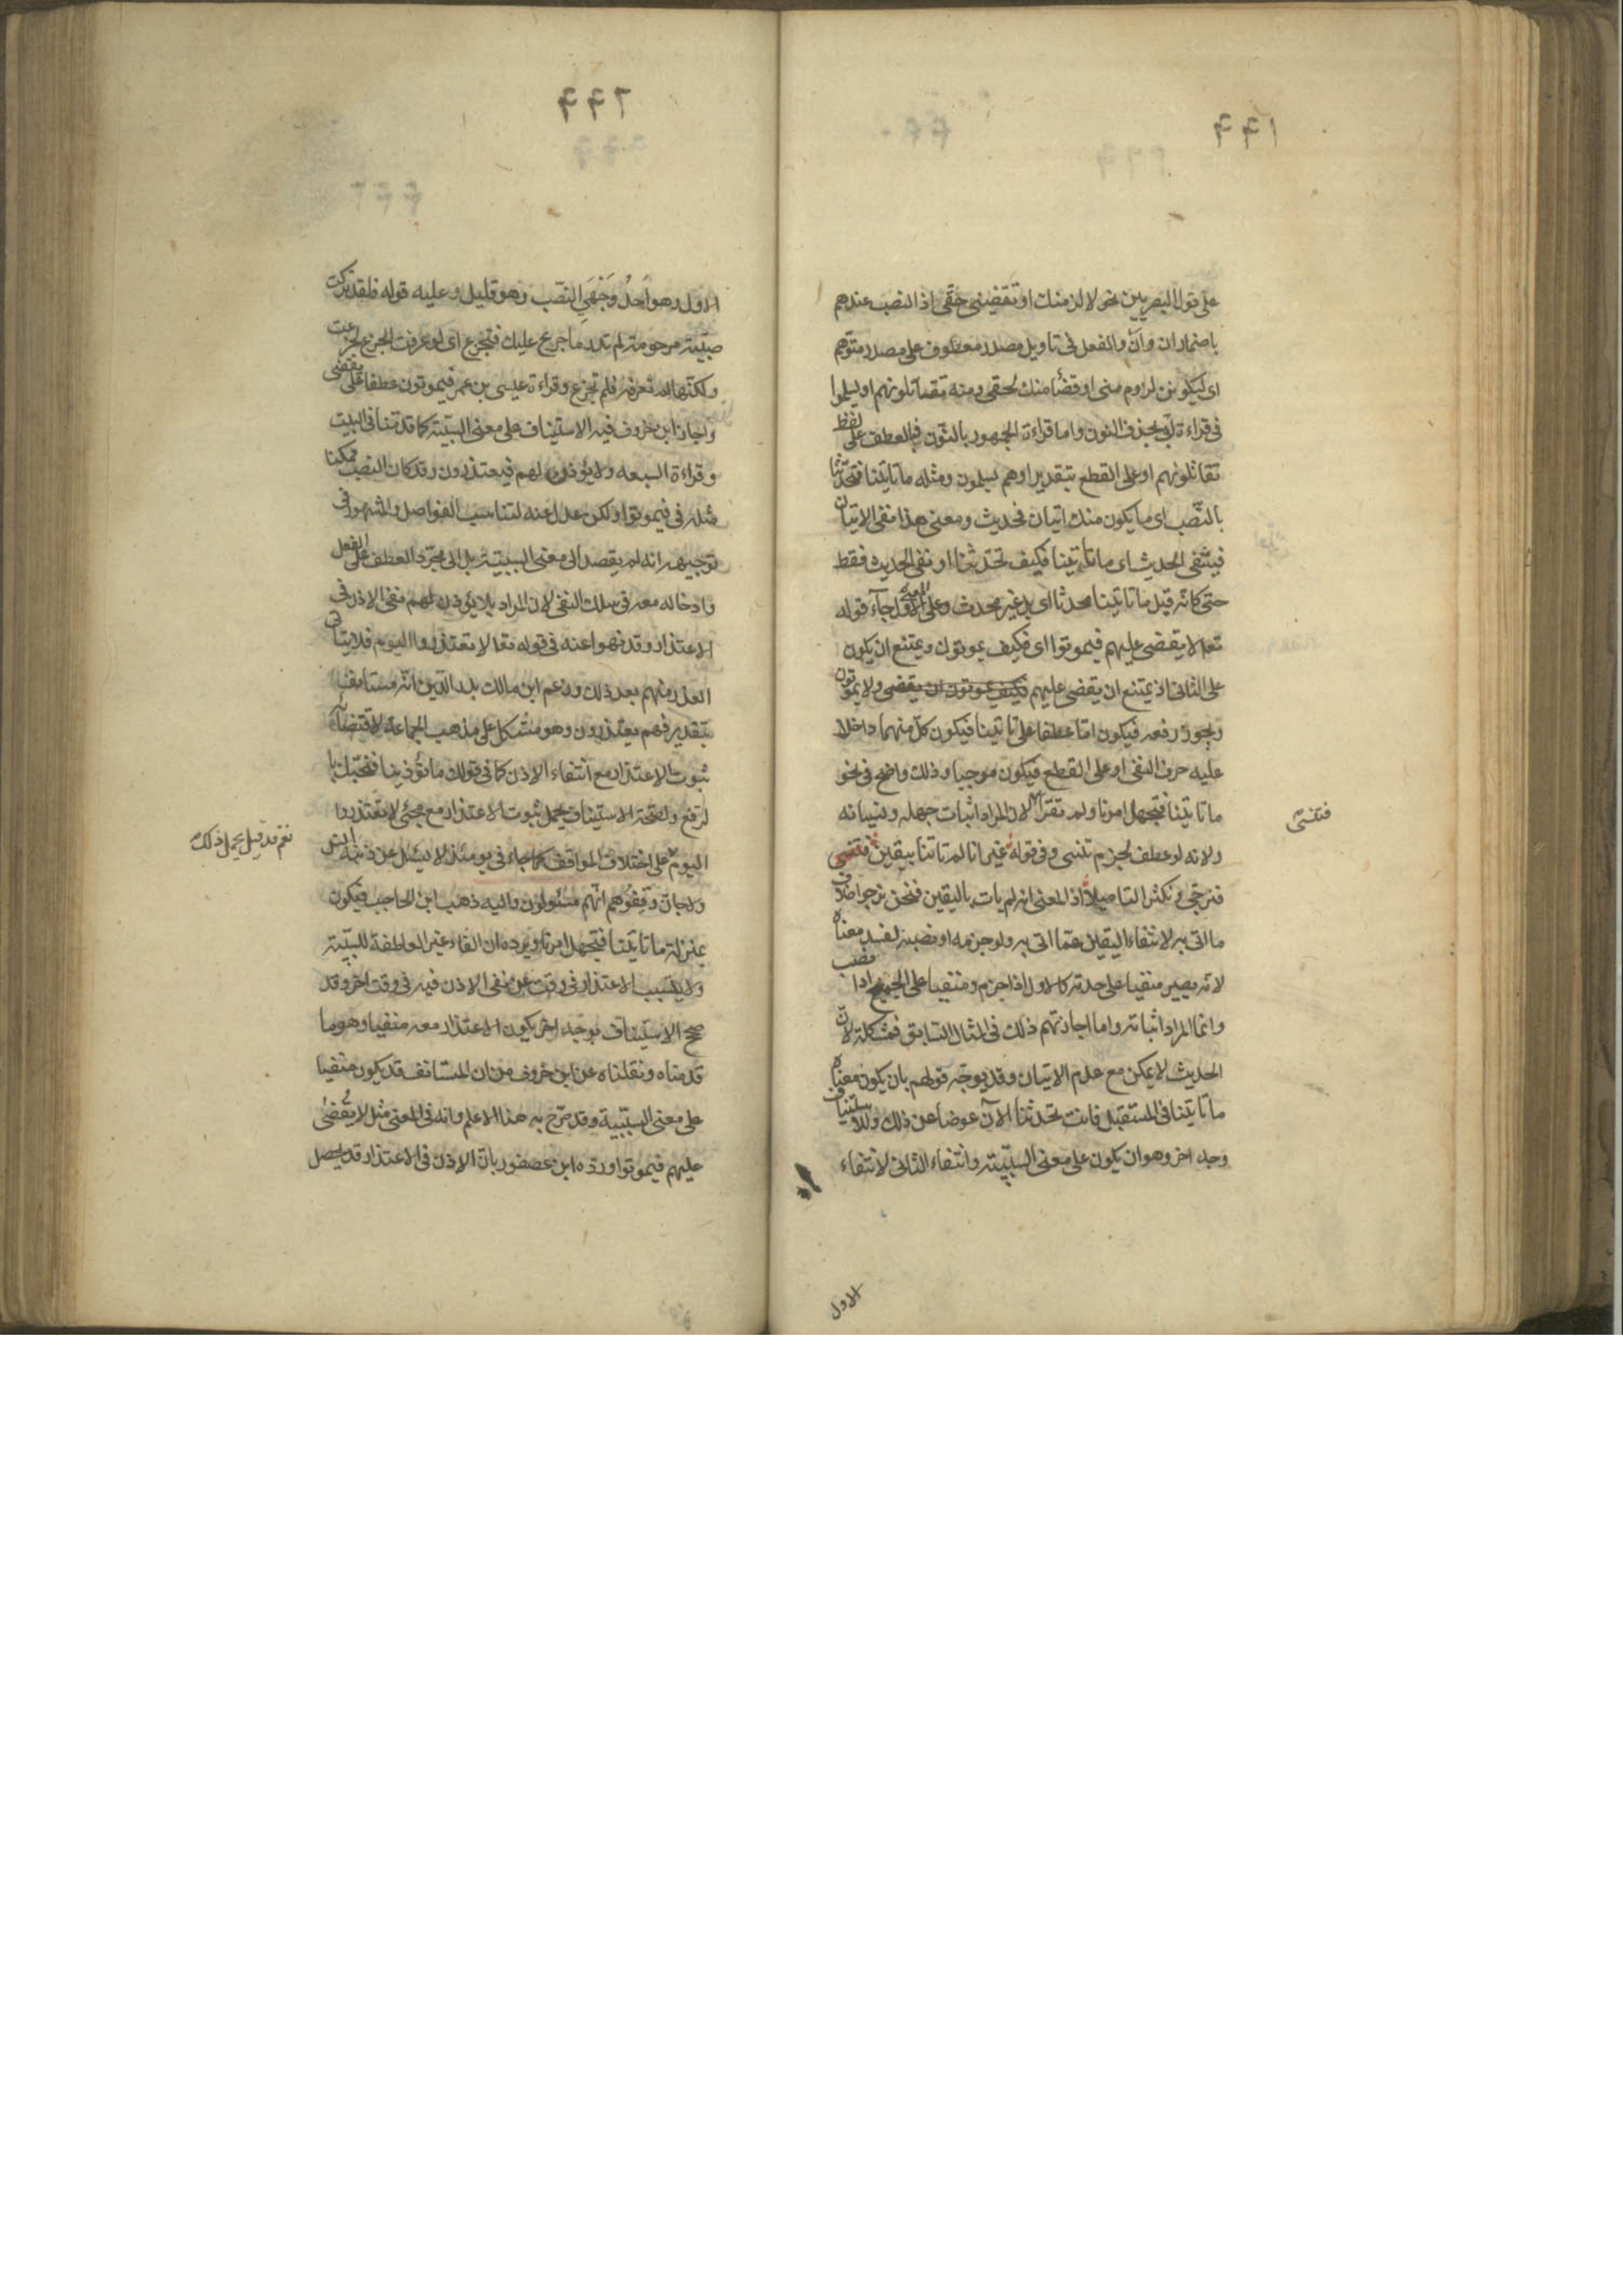 ٦٦١
على قول البصريين نحو لالزمنك او تقضيني حقى اذ النصب عندهم
باضماران وان والفعل فى تاويل مصدر معطوف على مصدر متوهم
اى ليكونن لزوم منى او قضأ منك لحقى ومنه تقاتلونهم او يسلموا
فى قراءة ابى بحذف النون واما قراءة الجمهور بالنون فبالعطف على لفظ
تقاتلونهم او على القطع بتقدير او هم يسلمون ومثله ما تاتينا فتحدثنا
بالنصب اى ما يكون منك اتيان فحديث ومعنى هذا نفى الاتيان
فينتفى الحديث اى ما تأتينا فكيف تحدثنا او نفى الحديث فقط
حتى كانه قيل ما تاتينا محدثا اى بل غير محدث وعلى المعنى الاول جآء قوله
تعالى لا يقضى عليهم فيموتوا اى فكيف يموتون ويمتنع ان يكون
على الثانى اذ يمتنع ان يقضى عليهم فكيف يموتون ان يقضى ولا يموتون
ويجوز رفعه فيكون اما عطفا على تاتينا فيكون كل منهما داخلا
عليه حرف النفى او على القطع فيكون موجبا وذلك واضح فى نحو
ما تاتينا فتجهل امرنا ولم تقرا لان المراد اثبات جهله ونسيانه
فتنسى
ولانه لو عطف لجزم تنسى وفى قوله غير انا لم تاتنا بيقين
فنرجى ونكثر التاميلا اذ المعنى انه لم يات باليقين فنحن نرجو اخلاف
ما اتى به لانتفاء اليقين عما اتى به ولو جزمه او نصبه لفسد معناه
لانه يصير منفيا على حدته كالاول اذا جزم ومنفيا على الجميع اذا نصب
وانما المراد اثباته واما اجازتهم ذلك فى المثال السابق فمشكلة لان
الحديث لا يمكن مع عدم الاتيان وقد يوجه قولهم بان يكون معناه
ما تاتينا فى المستقبل فانت تحدثنا الآن عوضا عن ذلك وللاستيناف
وجه اخر وهو ان يكون على معنى السببية وانتفاء الثانى لانتفاء
الاول
٦٦٢
الاول وهو احد وجهى النصب وهو قليل وعليه قوله فلقد تركت
صبية مرحومة لم تدر ما جزع عليك فتجزع اى لو عرفت الجزع لجزعت
ولكنها لم تعرفه فلم تجزع وقراءة عيسى بن عمر فيموتون عطفا على يقضى
واجاز ابن خروف فيه الاستيناف على معنى السببية كما قدمنا فى البيت
وقراءة السبعه ولا يؤذن لهم فيعتذرون وقد كان النصب ممكنا
مثله فى فيموتوا ولكن عدل عنه لتناسب الفواصل والمشهور فى
توجيهه انه لم يقصد الى معنى السببية بل الى مجرد العطف على الفعل
وادخاله معه فى سلك النفى لان المراد بلا يؤذن لهم نفى الاذن فى
الاعتذار وقد نهوا عنه فى قوله تعالى لا تعتذروا اليوم فلا يتاتى
العذر منهم بعد ذلك وزعم ابن مالك بدر الدين انه مستانف
بتقدير فهم يعتذرون وهو مشكل على مذهب الجماعة لاقتضآئه
ثبوت الاعتذار مع انتفاء الاذن كما فى قولك ما تؤذينا فنحبك با
لرفع ولصحة الاستيناف يحمل ثبوت الاعتذار مع مجئى لا تعتذروا
نعم قد قيل يحمل ذلك
اليوم على اختلاف المواقف كما جاء فى يومئذ لا يسئل عن ذنبه انس
ولاجان وقفوهم انهم مسئولون واليه ذهب ابن الحاجب فيكون
بمنزلة ما تاتينا فتجهل امرنا ويرده ان الفاء غير العاطفة للسببية
ولا يتسبب الاعتذار فى وقت عن نفى الاذن فيه فى وقت اخر وقد
صح الاستيناف بوجه اخر يكون الاعتذار معه منفيا وهو ما
قدمناه ونقلناه عن ابن خروف من ان المستانف قد يكون منفيا
على معنى السببية وقد صرح به هنا الاعلم وانه فى المعنى مثل لا يقضى
عليهم فيموتوا ورده ابن عصفور بان الاذن فى الاعتذار قد يحصل